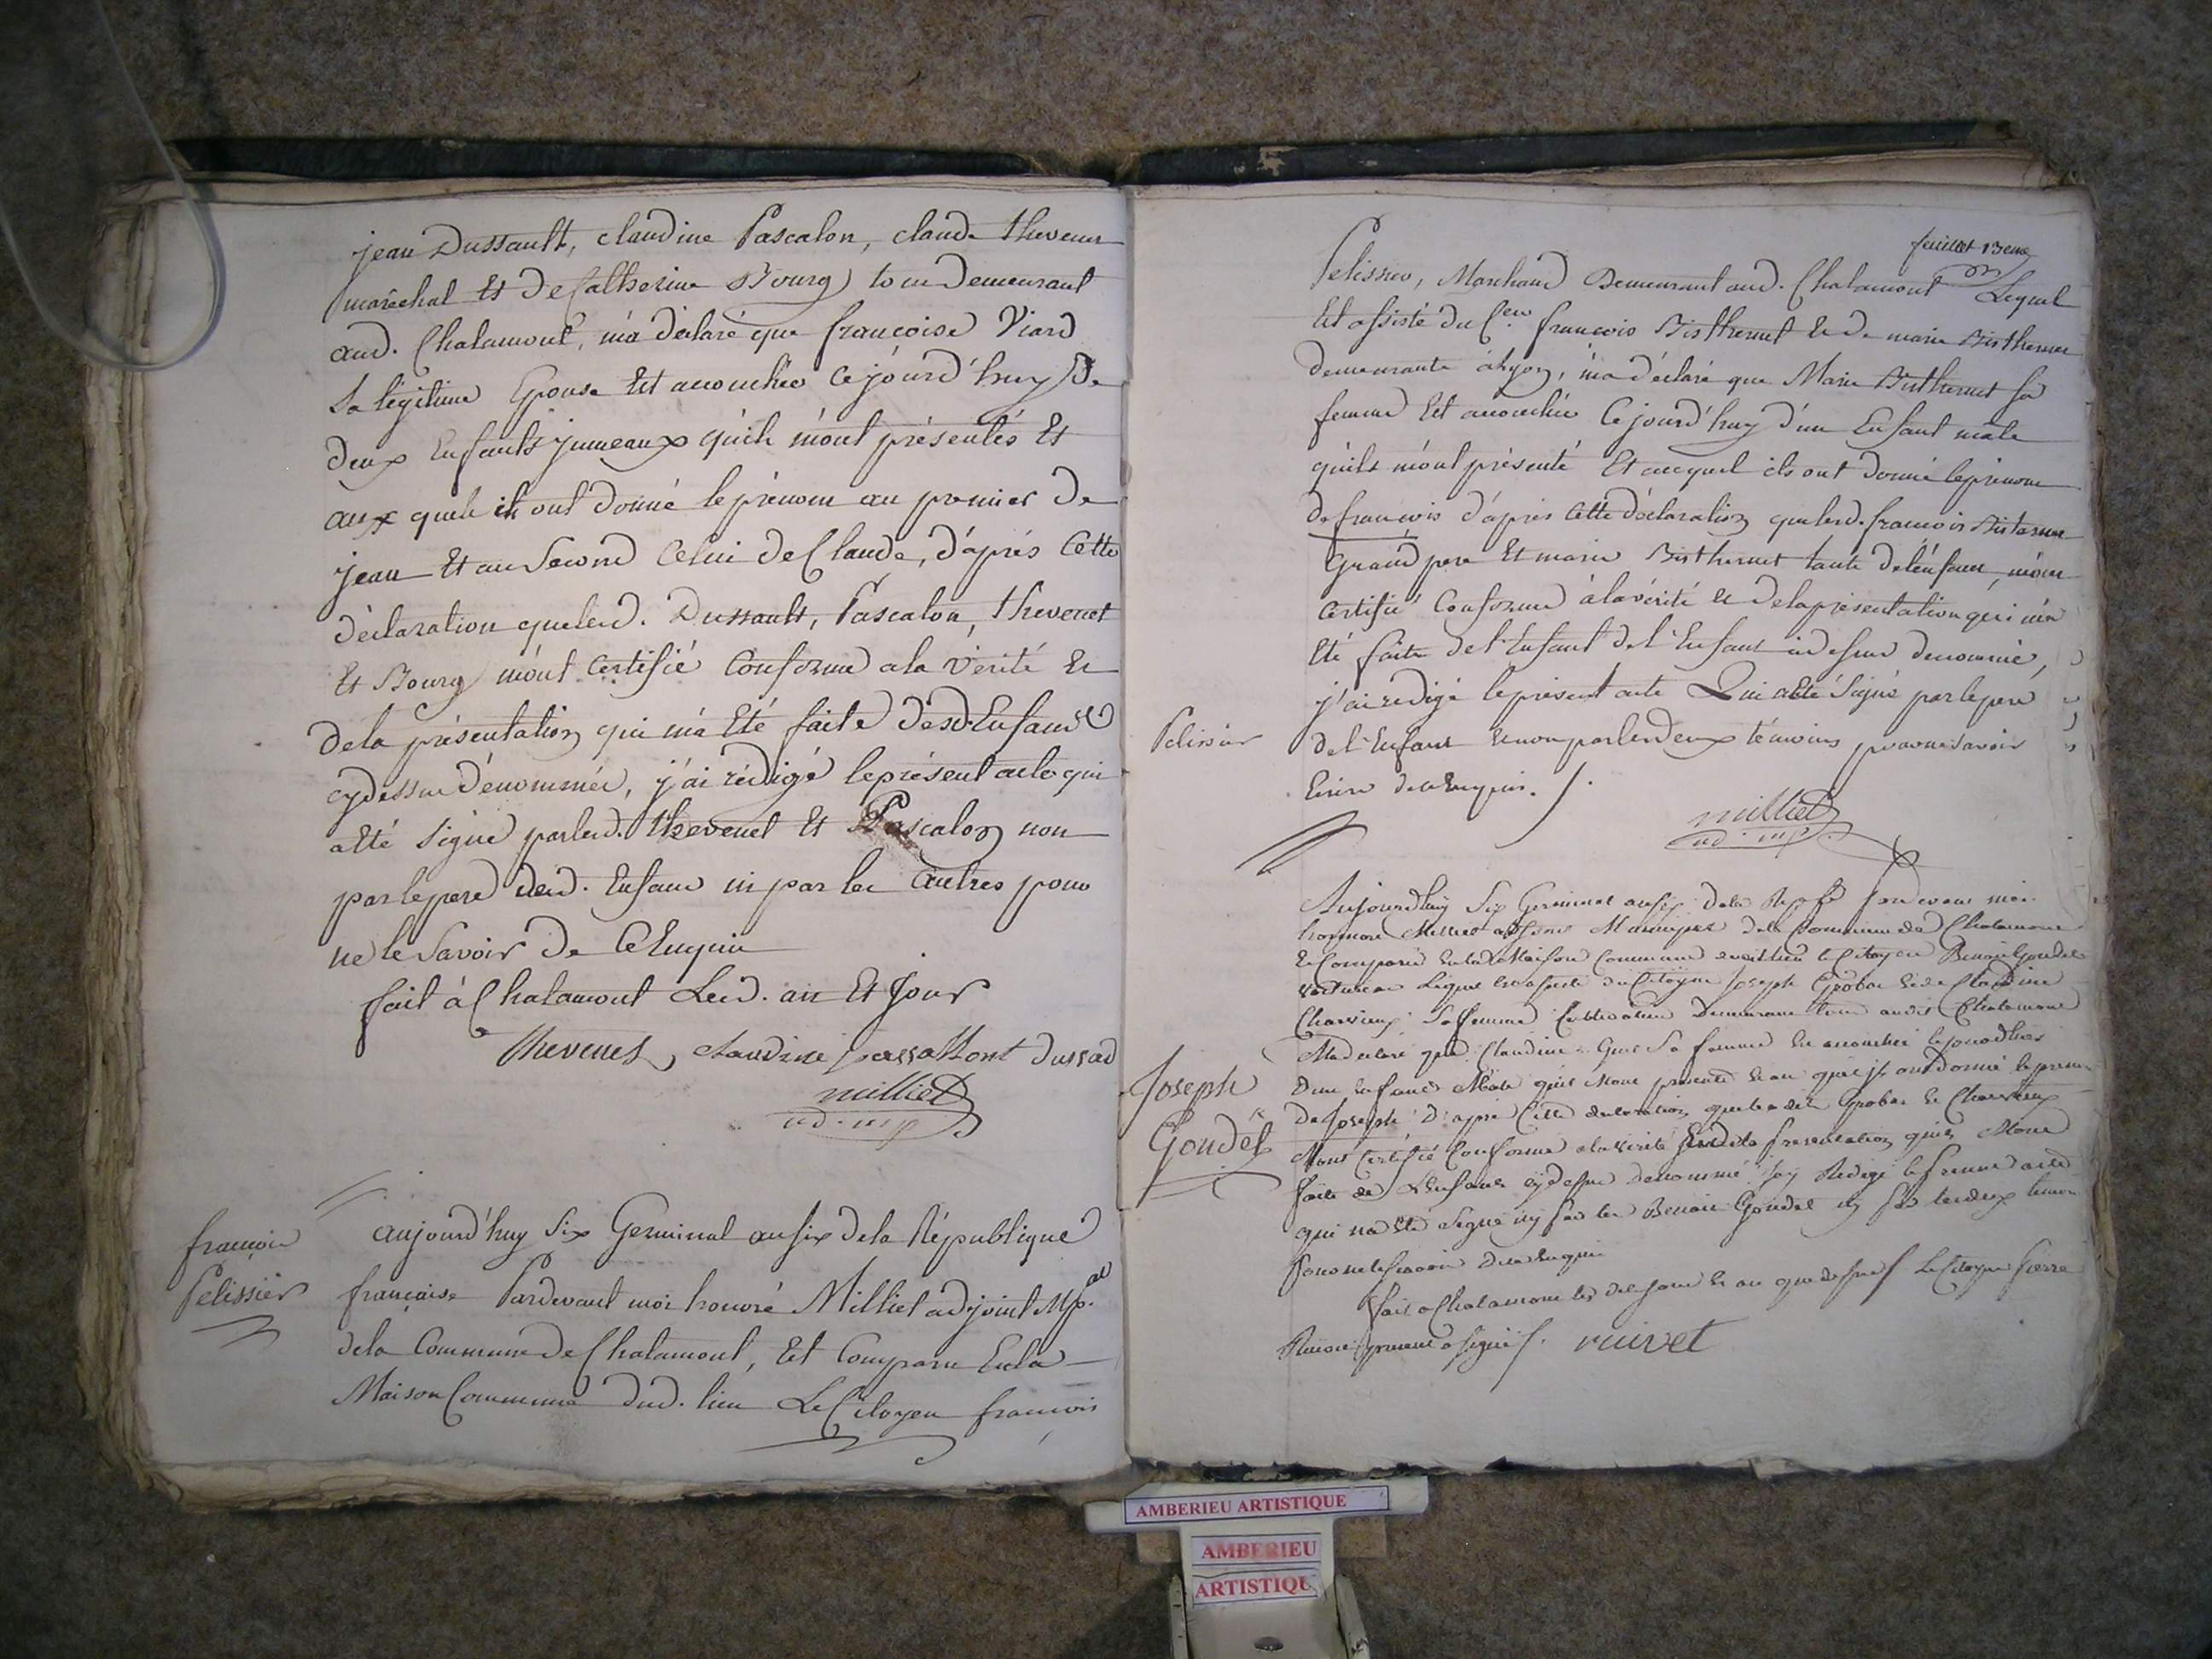 jean Dussault, claudine Pascalon, claude thevenet
maréchal Et de Catherine Bourg tous demeurant
aud. Chalamont, m'a déclaré que françoise Viard
sa légitime Epouse Est accouchée cejourd'huy De
deux Enfants jumeaux qu'ils m'ont présentés Et
aux quels ils ont donné le prénom au premier de
jean Et au Second Celui de Claude, d'après Cette
déclaration que lesd. Dussault, Pascalon, thevenet
Et Bourg m'ont Certifié Conforme a la vérité Et
de la présentation qui m'a Eté faite desd. Enfans
cydessus dénommés, j'ai rédigé le présent acte qui
a Eté signé par lesd. thevenet Et Pascalon non
par le pere desd. Enfans ni par les autres pour
ne le Savoir de Ce Enquis
fait à Chalamont Lesd. an Et jour
thevenet, claudine passallont dussad
milliet
ad. mp
françois
Pelissier
aujourd'huy Six Germinal an six de la République
française Pardevant moi honoré Milliet adjoint Mp.al
de la Commune de Chalamont, Est Comparu En la
Maison Commune dud. lieu Le Citoyen françois
feuillet 13eme
Pelissier, Marchand Demeurant aud. Chalamont Lequel
Est assisté du C.en françois Bisthernet Et de marie Bisthernet
demeurante à Lyon, m'a déclaré que Marie Bisthernet sa
femme Est accouchée Cejourd'huy d'un Enfant mâle
qu'ils m'ont présenté Et auquel ils ont donné le prénom
de françois d'après Cette déclaration que lesd. françois
Grand pere Et marie Bisthernet tante de l'enfant, m'ont
Certifié Conforme à la vérité et de la présentation qui m'a
Eté faite de l'Enfant de l'Enfant cidessus denommé,
j'ai rédigé le présent acte Qui a Eté Signé par le pere
Pelissier
de l'Enfant Et non par les deux témoins pour ne savoir
Ecrire de ce Enquis. /.
milliet
ad. mp
Aujourdhuy Six Germinal an six de la Rep. fse Pardevant moi
honnore Milliet adjoint Municipal de la Commune de Chalamont
Est Comparu en la Maison Commune dudit lieu le Citoyen Benoit Goudet
voiturier Lequel est assisté du Citoyen Joseph Grobas Et de Claudine
Charvieux Sa femme Cultivateur Demeurant tous audit Chalamont
M'a declaré que Claudine Sa femme Est accouchée Cejourdhui
Joseph
Goudet
D'un Enfant Mâle qu'il Mont présenté Et au quel ils ont Donné le prenom
De Joseph D'apprès Cette declaration que lesdits Grobas Et Charvieux
Mont Certifié Conforme à la vérité Et de la presentation quils Mont
faite de L'Enfant cydessus denommé Jay Redigé le present acte
qui na Eté Signé ny par led. Benoit Goudet ny par les deux temoins
Pour ne le savoir de ce Enquis
fait a Chalamont lesdits jour Et an que dessus / Le Citoyen Pierre
present a signé /. ruivet